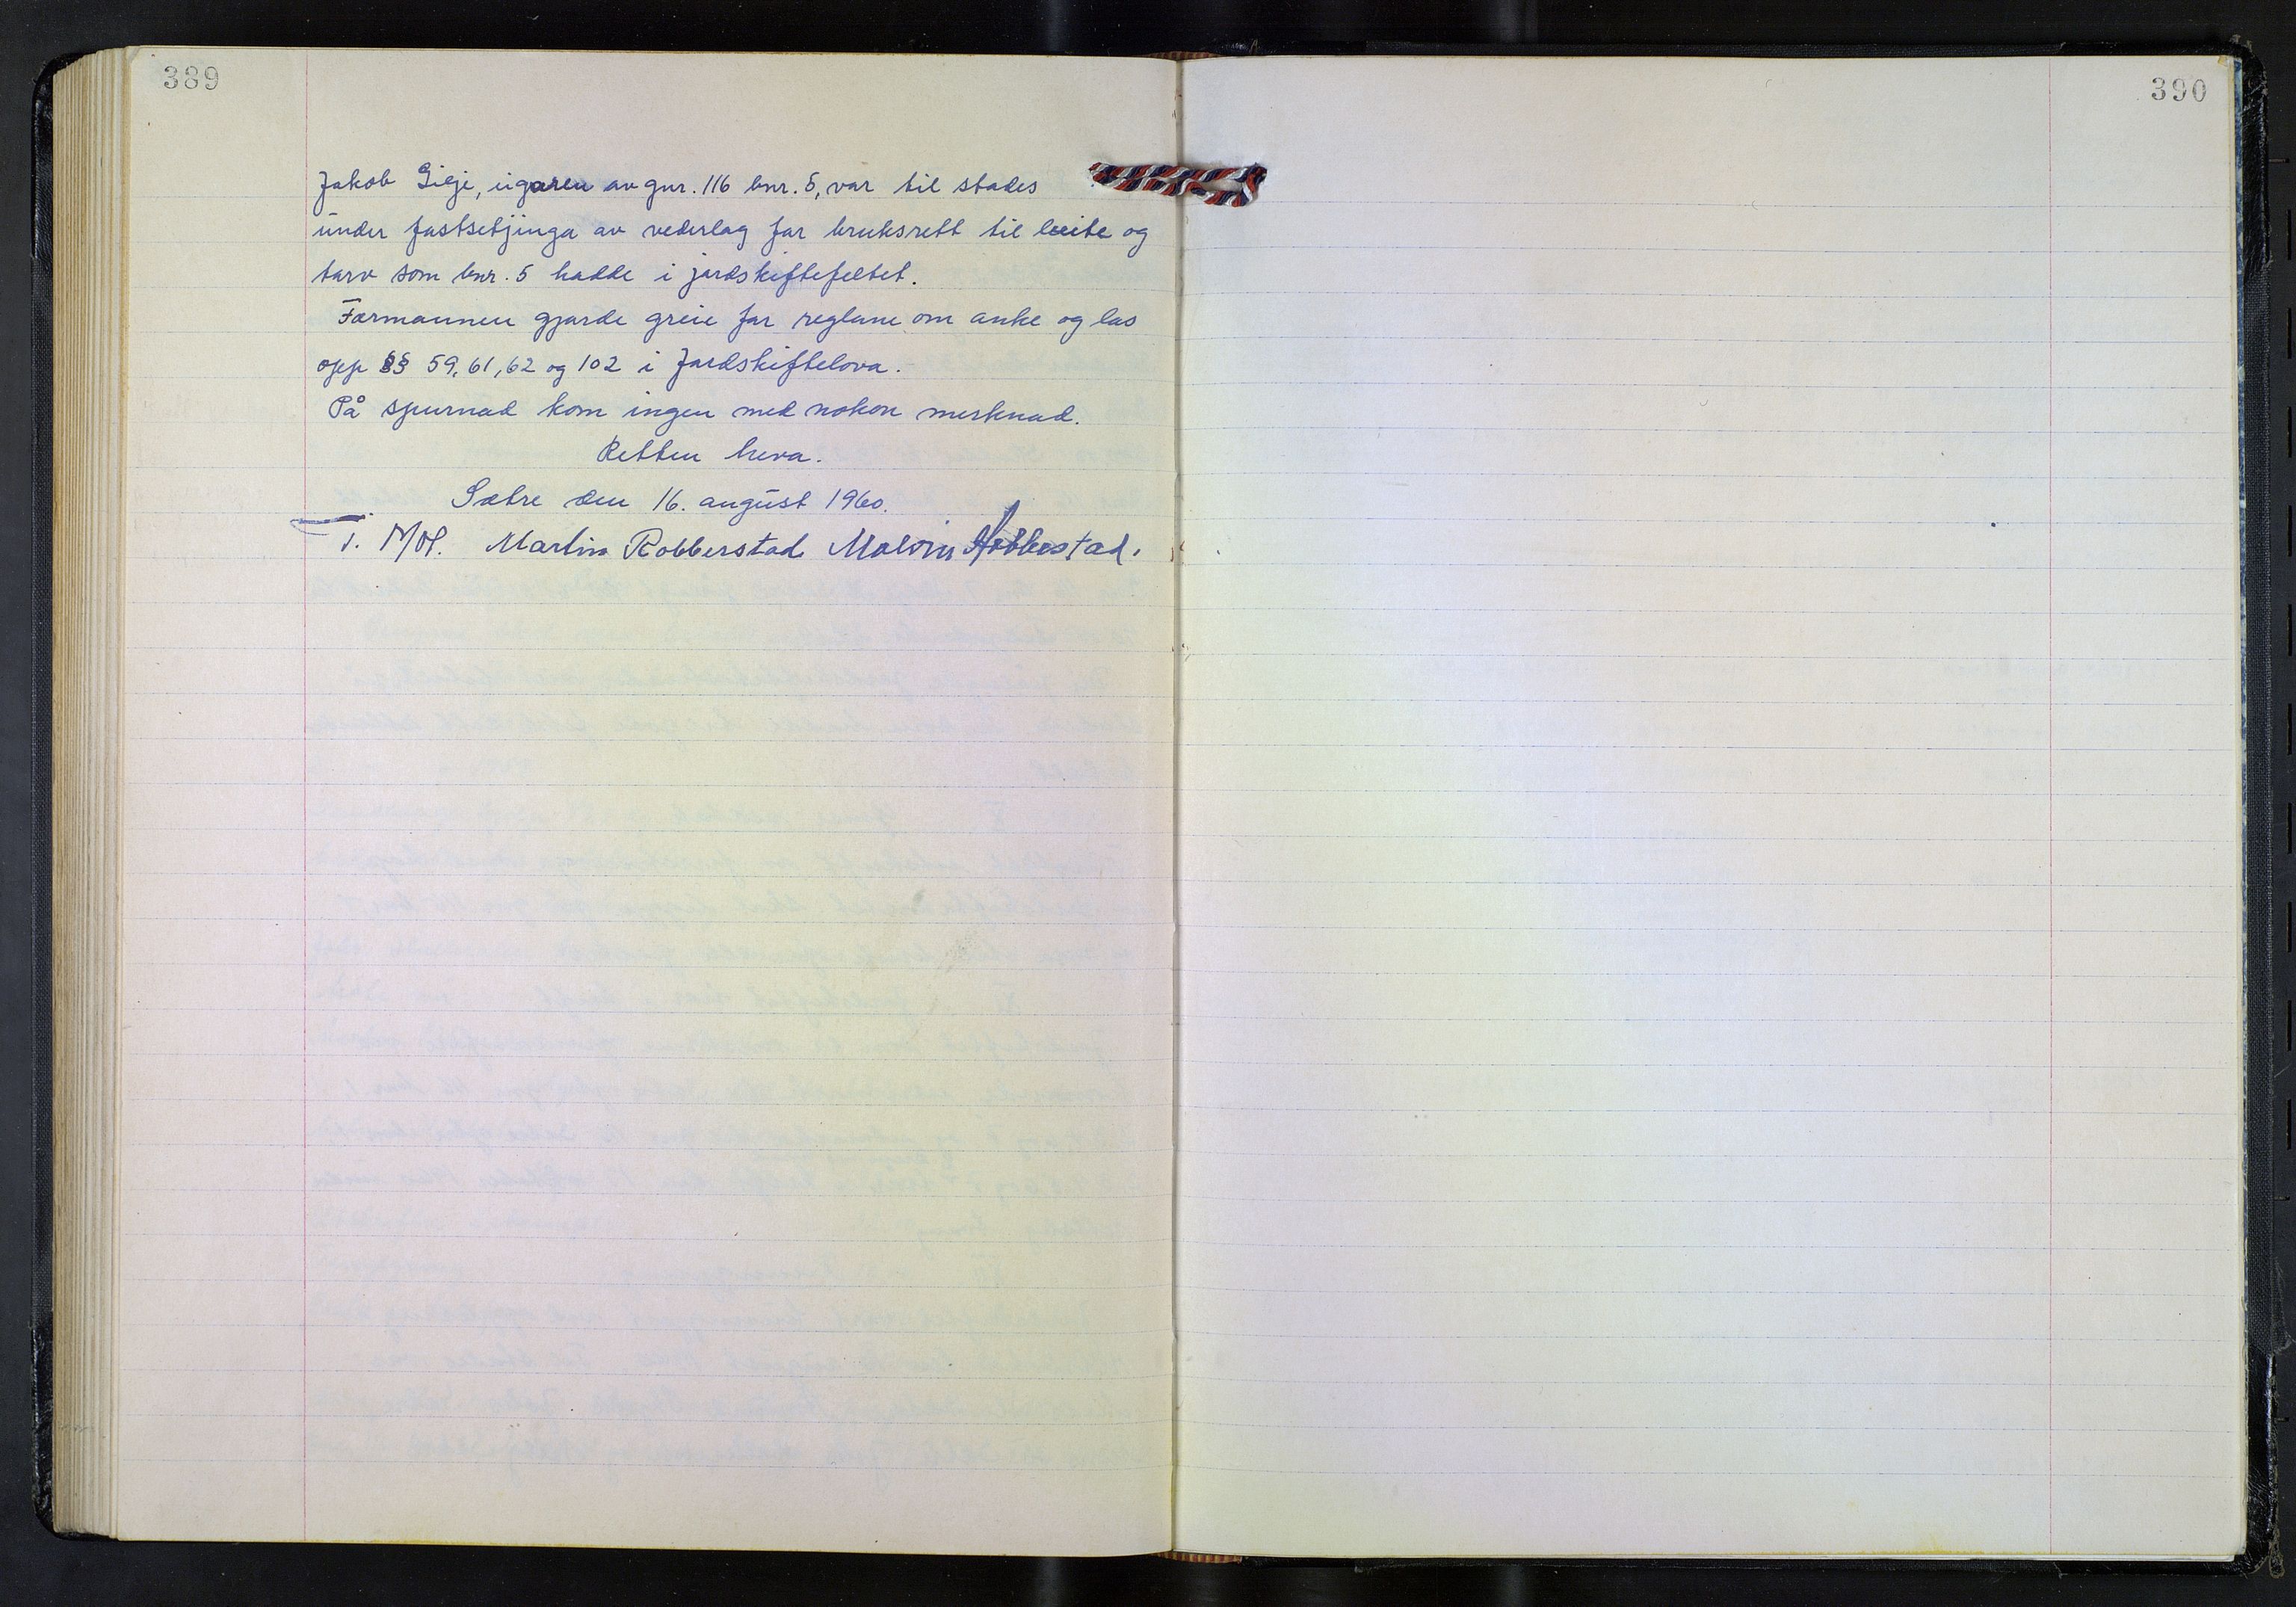 389
390
Jakob Gilje, eigaren av gnr. 116 bnr. 5, var til stades
under fastsetjinga av vederlag for bruksrett til beite og
torv som bnr. 5 hadde i jordskiftefeltet.
Formannen gjorde greie for reglane om anke og las
opp §§ 59, 61, 62 og 102 i Jordskiftelova.
På spurnad kom ingen med nokon merknad.
Retten heva.
Sætre den 16. august 1960.
T. Mol. Martin Robberstad Malvin Aobberstad.